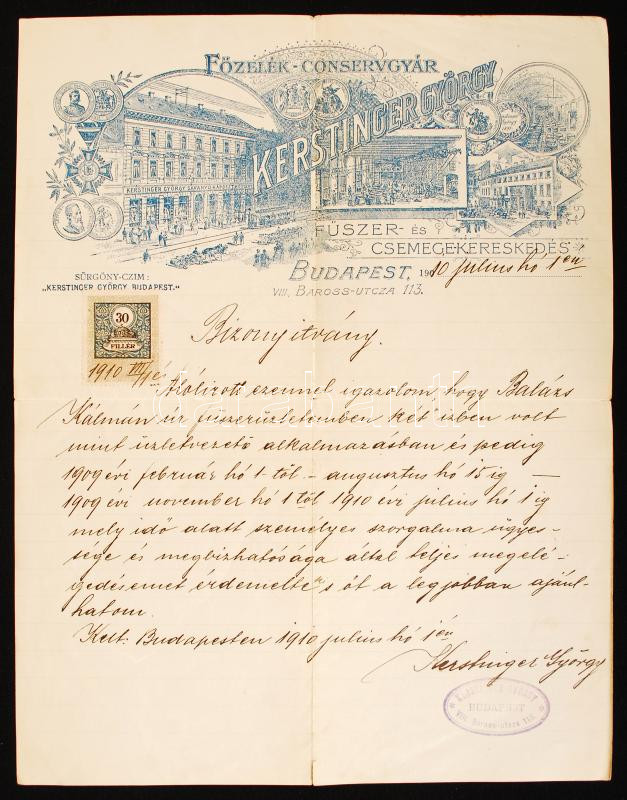 FŐZELÉK-CONSERVGYÁR
KERSTINGER GYÖRGY
KERSTINGER GYÖRGY
FŰSZER- ÉS
CSEMEGEKERESKEDÉS
SÜRGÖNY-CZIM:
"KERSTINGER GYÖRGY BUDAPEST."
BUDAPEST, 1910 július hó 1én
VIII, BAROSS-UTCZA 113.
30
FILLÉR
1910 VII/1én
Bizonyitvány.
Alólirott ezennel igazolom, hogy Balázs
Kálmán úr füszerüzletemben két izben volt
mint üzletvezető alkalmazásban és pedig
1909 évi február hó 1-től – augusztus hó 15 ig –
1909 évi november hó 1 től 1910 évi július hó 1 ig
mely idő alatt személyes szorgalma ügyes-
sége és megbizhatósága által teljes megelé-
gedésemet érdemelte s őt a legjobban ajánl-
hatom.
Kelt. Budapesten 1910 július hó 1én
Kerstinger György
KERSTINGER GYÖRGY
BUDAPEST
VIII. Baross-utcza 113.
darabanth